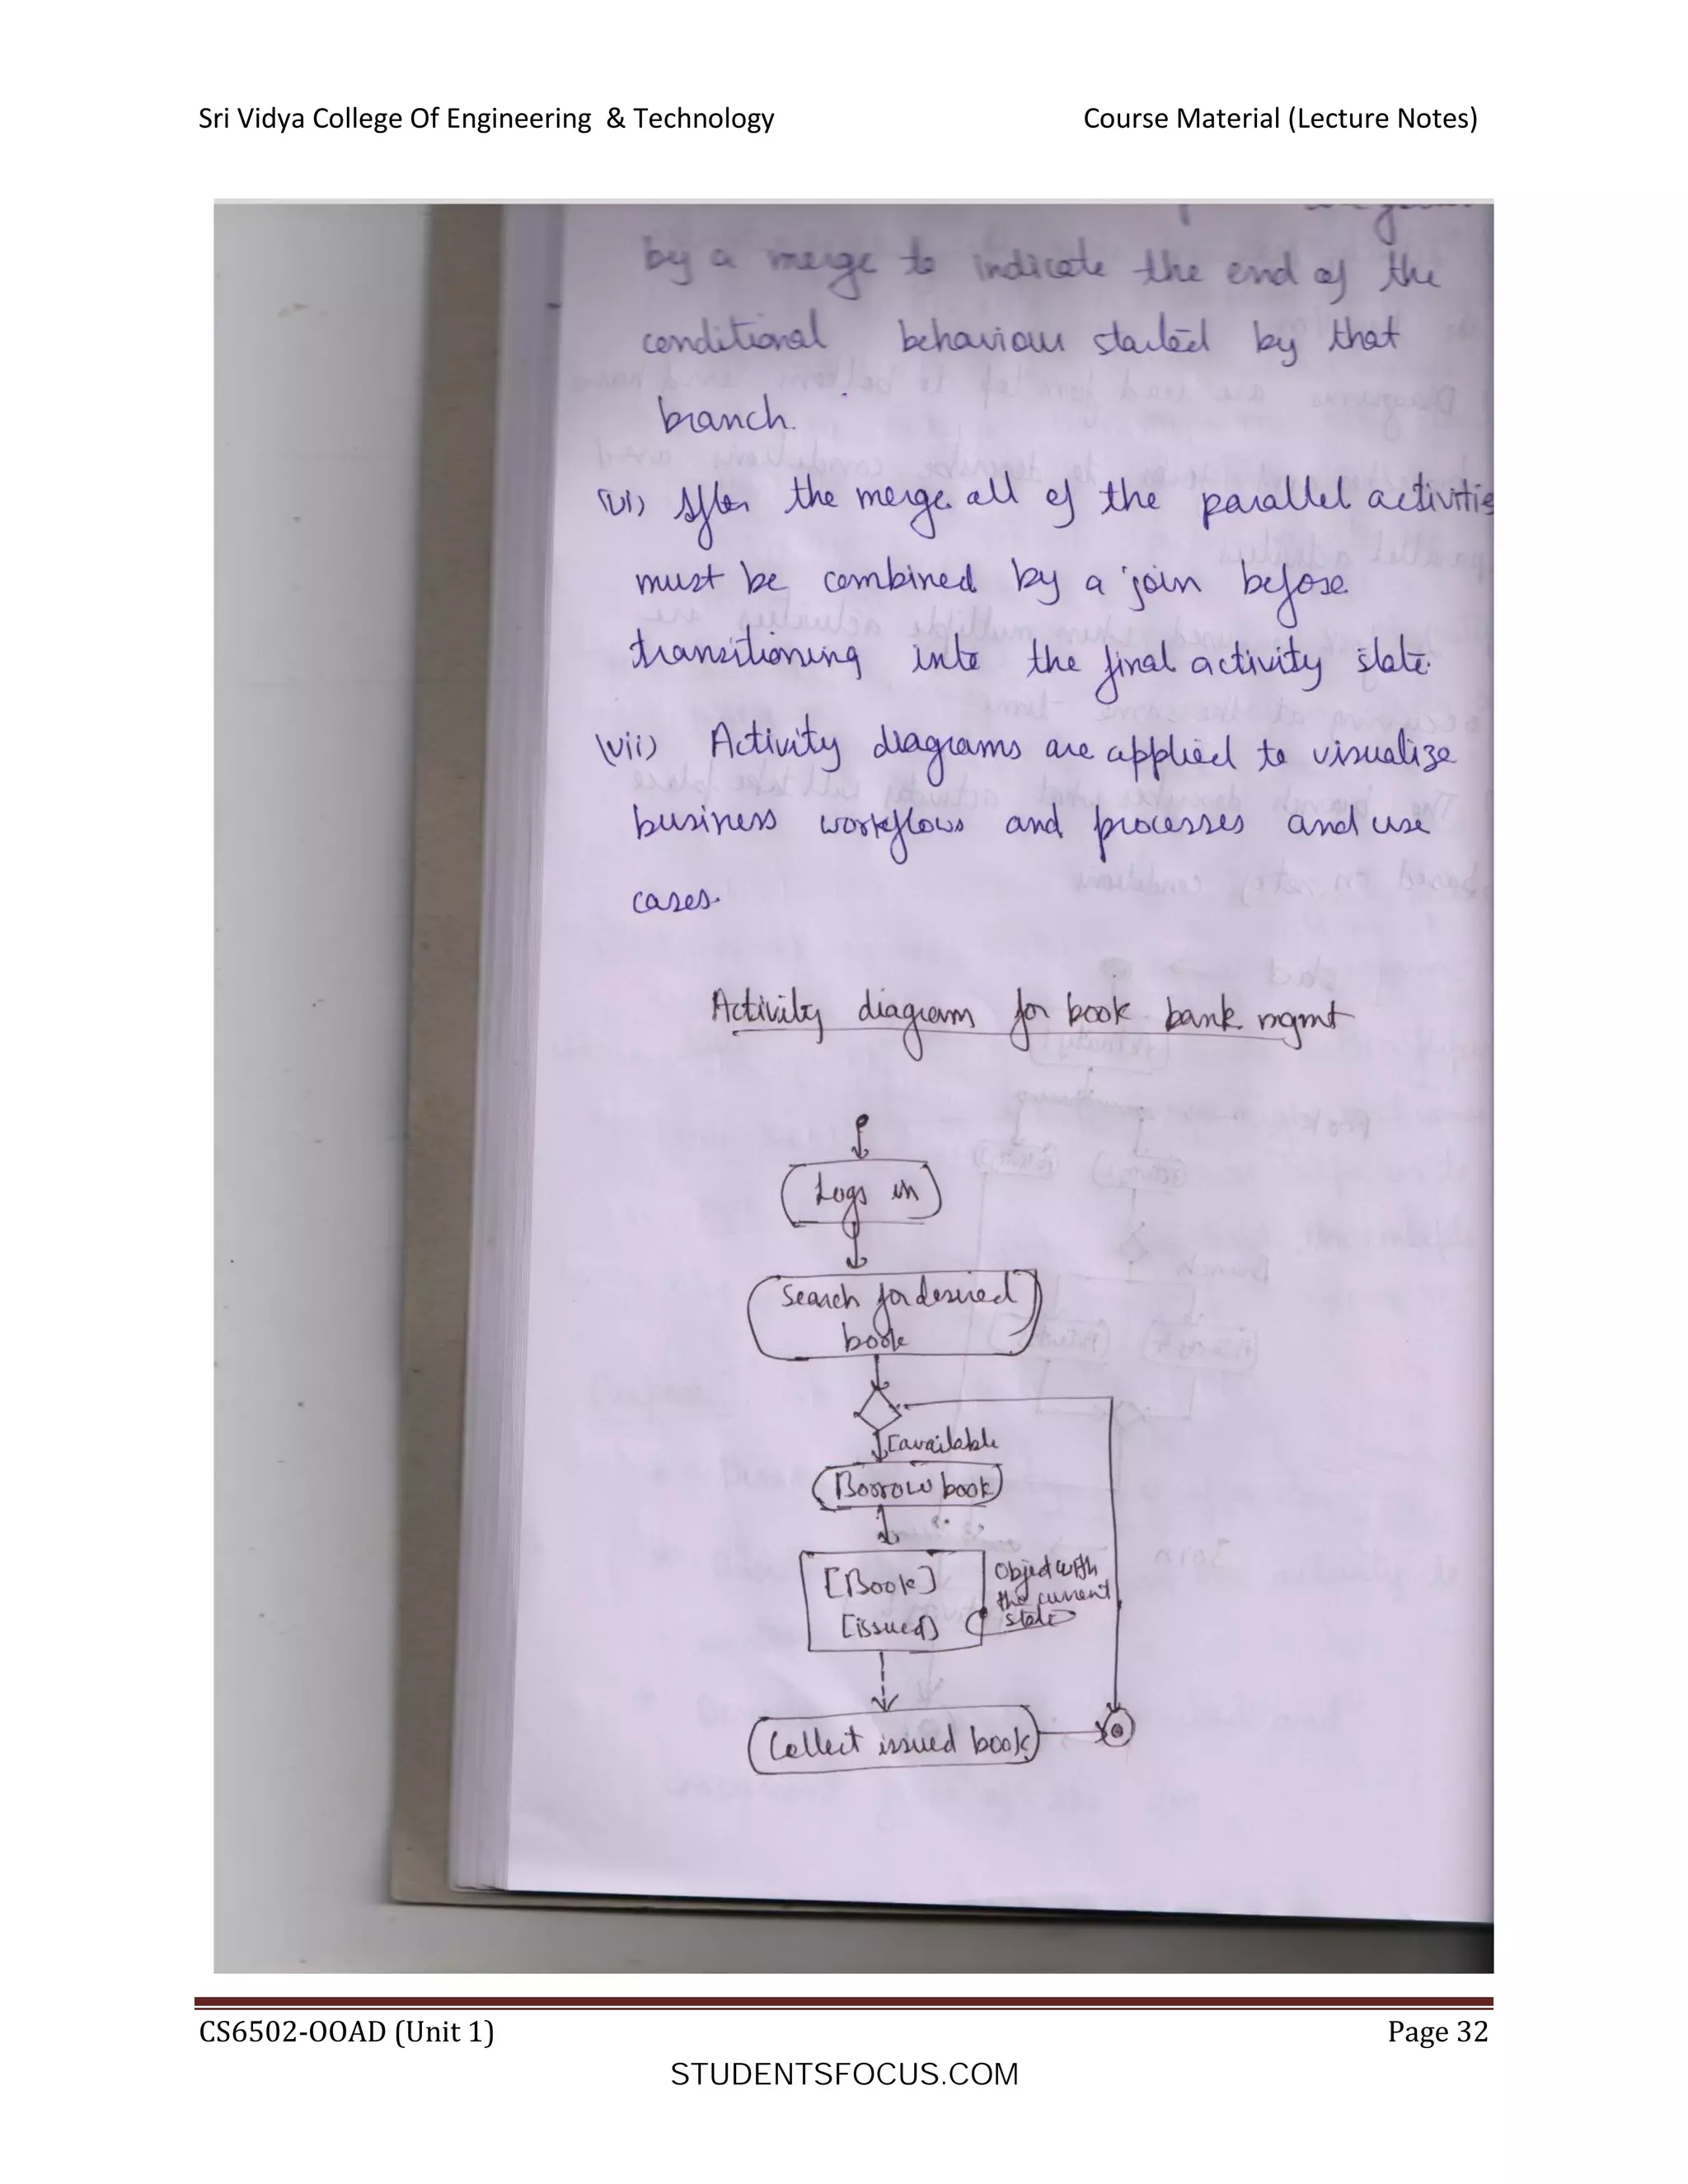 Sri Vidya College Of Engineering & Technology Course Material (Lecture Notes)
by a merge to indicate the end of the
conditional behaviour started by that
branch.
(vi) After the merge all of the parallel activitie
must be combined by a join before
transitioning into the final activity state.
(vii) Activity diagrams are applied to visualize
business workflows and processes and use
cases.
Activity diagram for book bank mgmt
Logs in
Search for desired
book
[available
Borrow book
[Book]
[issued]
Object with
the current
state
Collect issued book
CS6502-OOAD (Unit 1) Page 32
STUDENTSFOCUS.COM